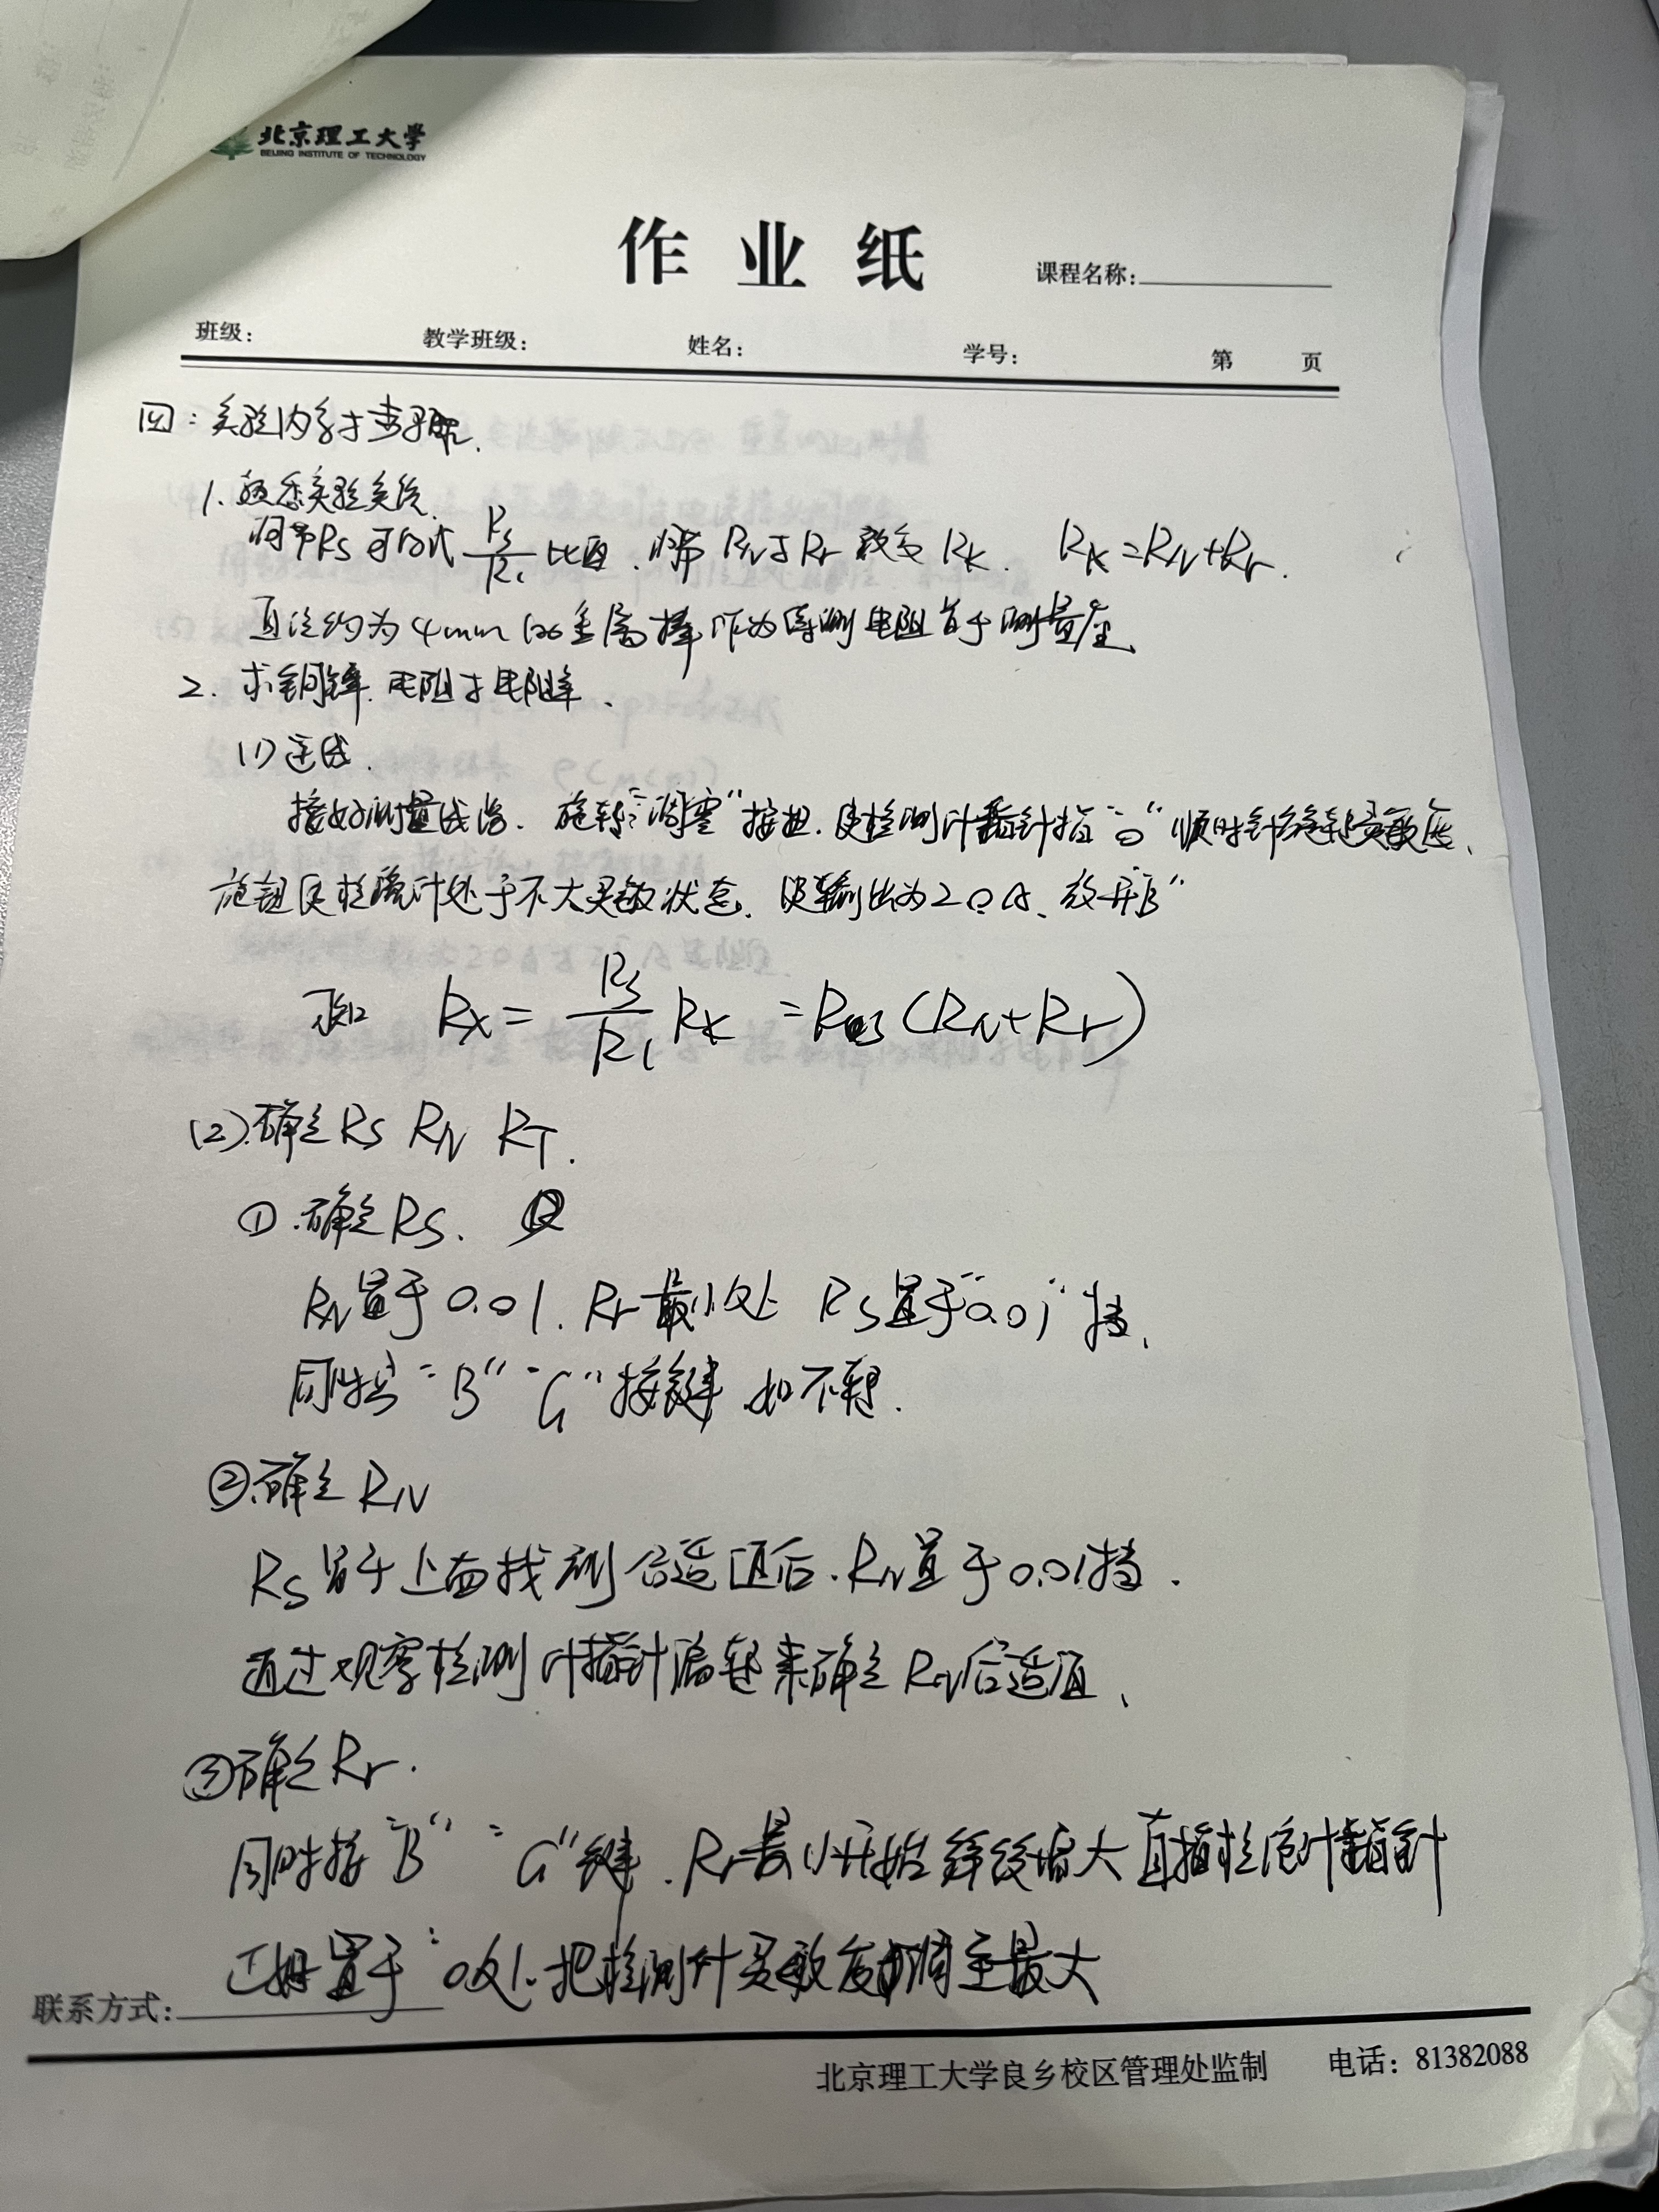 北京理工大学
BEIJING INSTITUTE OF TECHNOLOGY
作业纸
课程名称:
班级: 教学班级: 姓名: 学号: 第 页
四:实验内容与步骤.
1.熟悉实验系统.
调节Rs可改 Rs/R1 比值.调节 RN与Rr 改变 Rk. Rk=RN+Rr.
直径约为4mm的金属棒作为待测电阻置于测量座.
2. 求铜棒.电阻与电阻率.
(1)连线.
接好测量线路.旋转"调零"按扭.使检测计指针指"0"顺时针旋转灵敏度.
旋钮使检流计处于不大灵敏状态.使输出为2.0A.放开B"
Rx= Rs/R1 Rk =Rs(RN+Rr)
(2).确定 Rs RN RT.
①.确定Rs.
RN置于0.01.Rr最小处 Rs置于"0.01"挡.
同时按"B""G"按键
②.确定RN
Rs置于上面找到合适值后.RN置于0.01挡.
通过观察检测计指针偏转来确定RN合适值.
③确定Rr.
同时按"B" "G"键.Rr最小开始 增大直指检流计指针
置于"0处.把检测计灵敏度调至最大
联系方式:
北京理工大学良乡校区管理处监制 电话:81382088